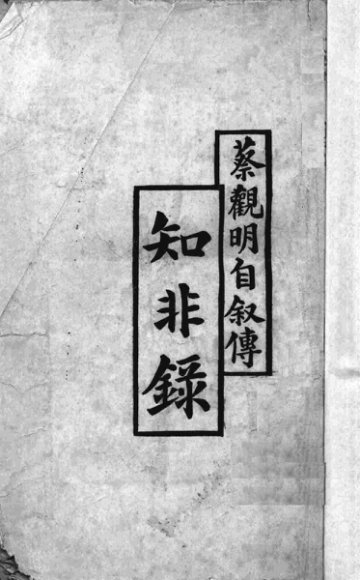 蔡觀明自叙傳
知非錄